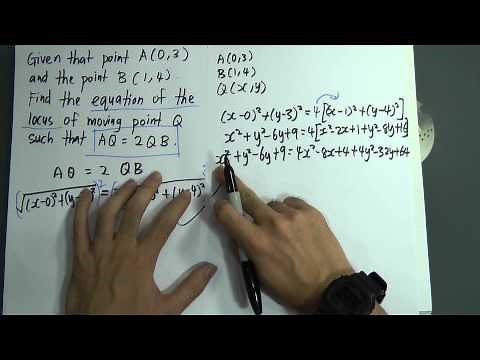 Given that point A(0,3)
and the point B(1,4).
Find the equation of the
locus of moving point Q
such that AQ = 2QB.
AQ = 2 QB
√(x-0)²+(y-3)² = + (y-4)²
A(0,3)
B(1,4)
Q(x,y)
(x-0)²+(y-3)² = 4[(x-1)²+(y-4)²]
x²+y²-6y+9 = 4[x²-2x+1+y²-8y+16]
x²+y²-6y+9 = 4x²-8x+4+4y²-32y+64